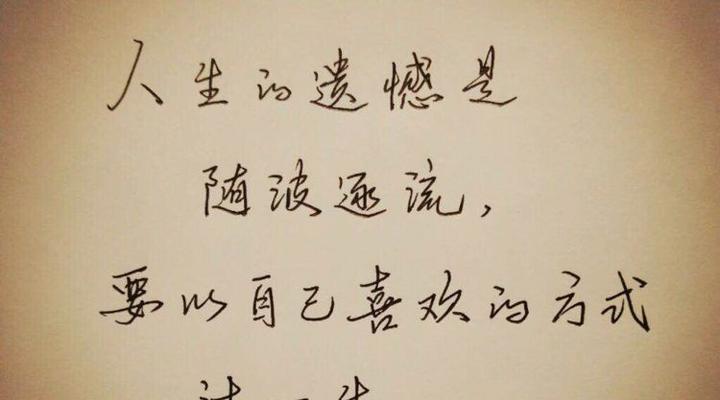 人生的遗憾是
随波逐流，
要以自己喜欢的方式
过一生